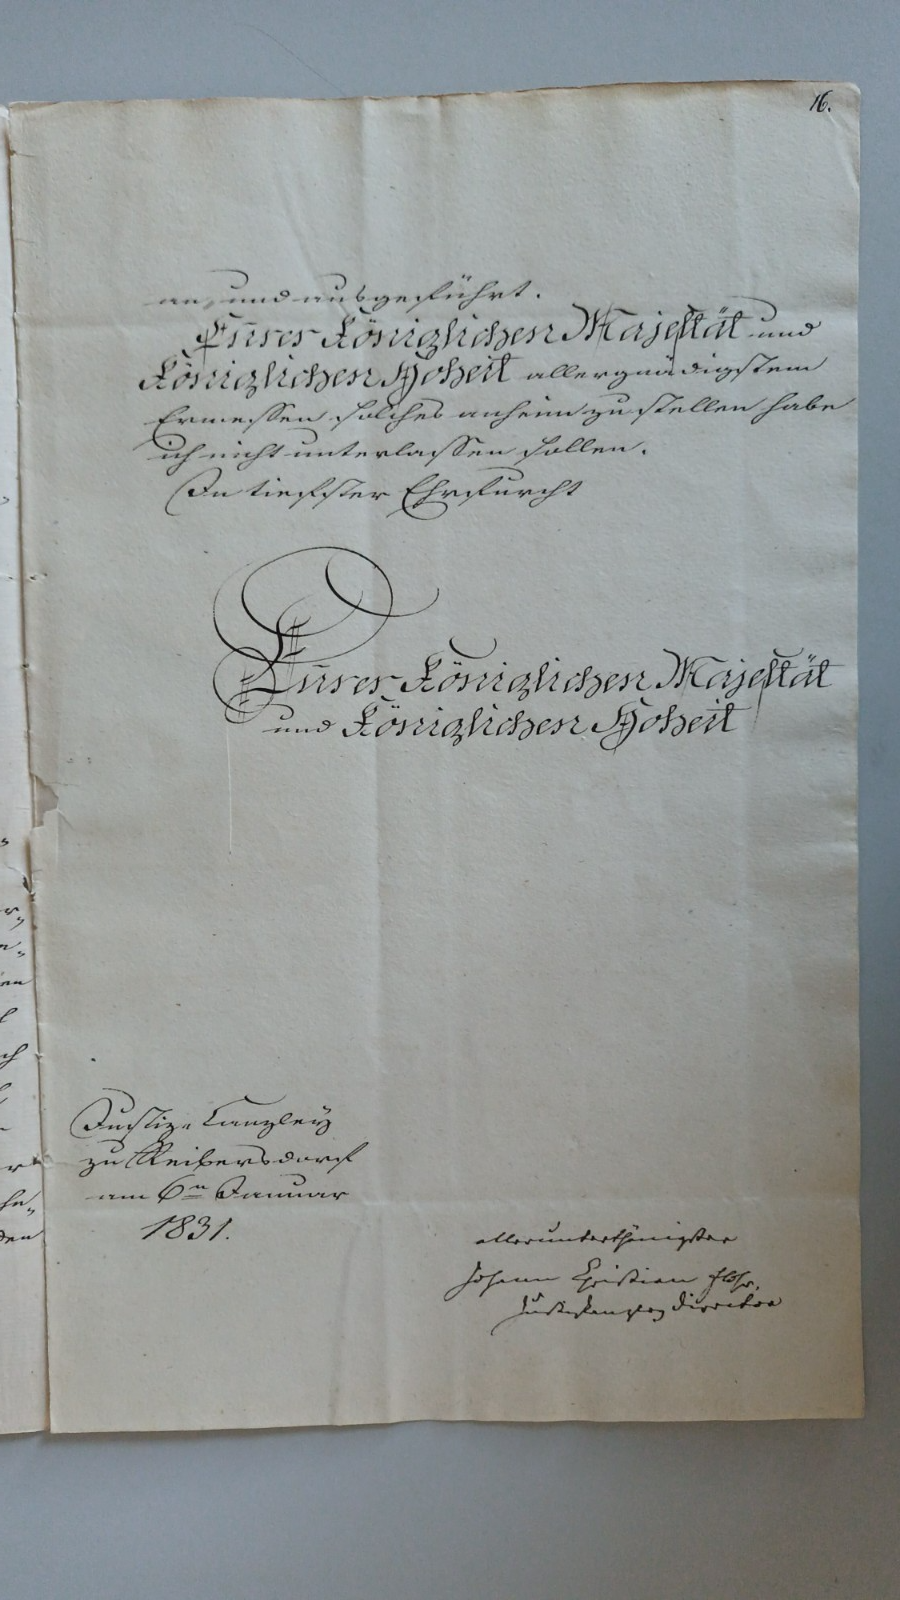 16.
an, und ausgeführt.
Eurer Königlichen Majestät und
Königlichen Hoheit allergnädigstem
Ermessen solches anheim zu stellen habe
ich nicht unterlassen sollen.
In tiefster Ehrfurcht
Eurer Königlichen Majestät
und Königlichen Hoheit
Justiz-Canzley
zu Reibersdorf
am 6n Januar
1831.
allerunterthänigster
Johann Christian
Justizkanzley Director